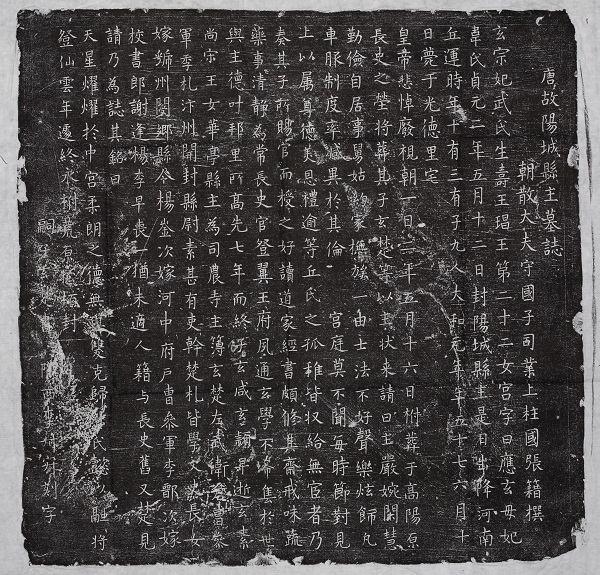 唐故陽城縣主墓誌
朝散大夫守國子司業上柱國張籍撰
玄宗妃武氏生壽王瑁王第二十二女宫字曰應玄母妃
韋氏貞元二年五月十二日封陽城縣主是日出降河南
丘運時年十有三有子九人大和元年年五十七六月十
日薨于光德里宅
皇帝悲悼廢視朝一日三年五月十六日祔葬于高陽原
長史之塋將葬其子玄楚等以其狀來請曰主嚴婉閑慧
勤儉自居事舅姑約家族一由士法不好聲樂炫飾凡
車服制度率減異於其倫 宫庭莫不聞每時節對見
上以属尊德爽恩禮逾等丘氏之孤稚皆収給無宦者乃
奏其子所賜官而授之好讀道家經書頗脩其齋戒味蔬
藥事清静為常長史官登翼王府夙通玄學不希售於世
與主德叶邦里所髙先七年而終子玄咸玄頴早逝玄素
尚宗王女華亭縣主為司農寺主簿玄楚左武衛倉曹参
軍季札汴州開封縣尉素甚有吏幹楚札皆學文法長女
嫁虢州閿鄉縣令楊鉴次嫁河中府户曹叅軍李鄑次嫁
校書郎謝逢楊李早喪一猶未適人籍与長史舊又楚見
請乃為誌其銘曰
天星燿燿於中宫柔朗之德無雙克歸丘氏懿以融將
登仙雲年遽終永樹荒原舊封
嗣子玄刻字